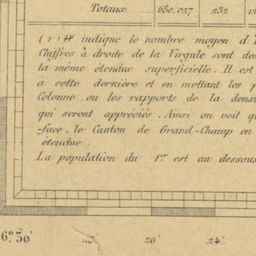 Totaux 650.027 252
indique le nombre moyen d'
Chiffres à droite de la Virgule sont des
la même étendue superficielle. Il est
à cette dernière et en mettant les
Colonne on les rapports de la dens
qui seront appréciés. Ainsi on voit qu
-face, le Canton de Grand-Champ en
étendue
La population du 1er est au dessous
6° 30' 26' 24'